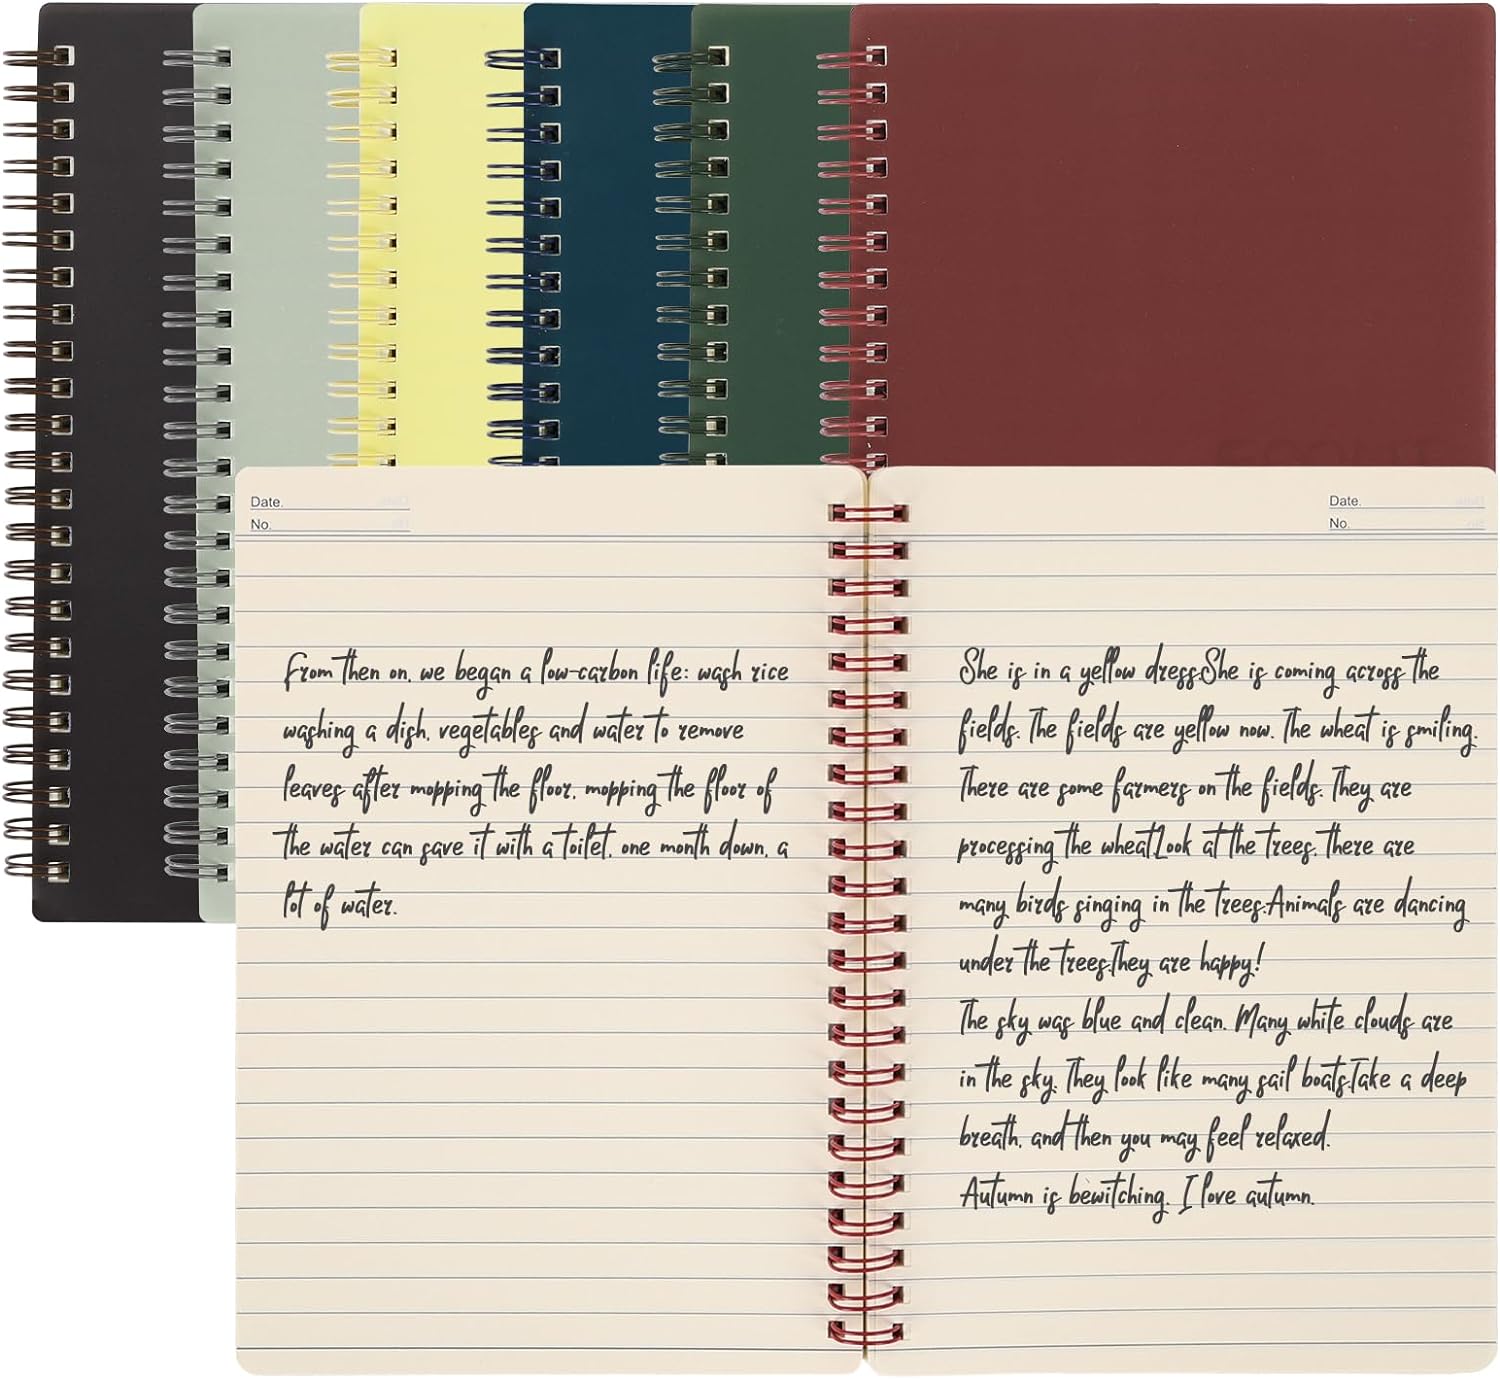 Date.
No.
From then on, we began a low-carbon life: wash rice
washing a dish, vegetables and water to remove
leaves after mopping the floor, mopping the floor of
the water can save it with a toilet, one month down, a
lot of water.
Date.
No.
She is in a yellow dress.She is coming across the
fields. The fields are yellow now. The wheat is smiling.
There are some farmers on the fields. They are
processing the wheat.Look at the trees. There are
many birds singing in the trees.Animals are dancing
under the trees.They are happy!
The sky was blue and clean. Many white clouds are
in the sky. They look like many sail boats.Take a deep
breath, and then you may feel relaxed.
Autumn is bewitching. I love autumn.